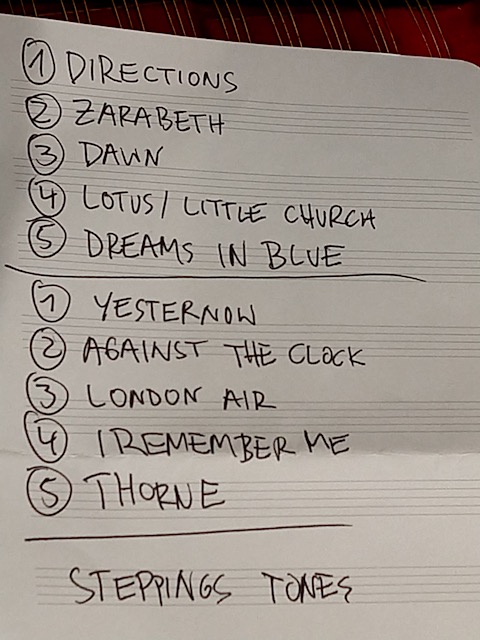 1 DIRECTIONS
2 ZARABETH
3 DAWN
4 LOTUS/ LITTLE CHURCH
5 DREAMS IN BLUE
1 YESTERNOW
2 AGAINST THE CLOCK
3 LONDON AIR
4 I REMEMBER ME
5 THORNE
STEPPINGS TONES